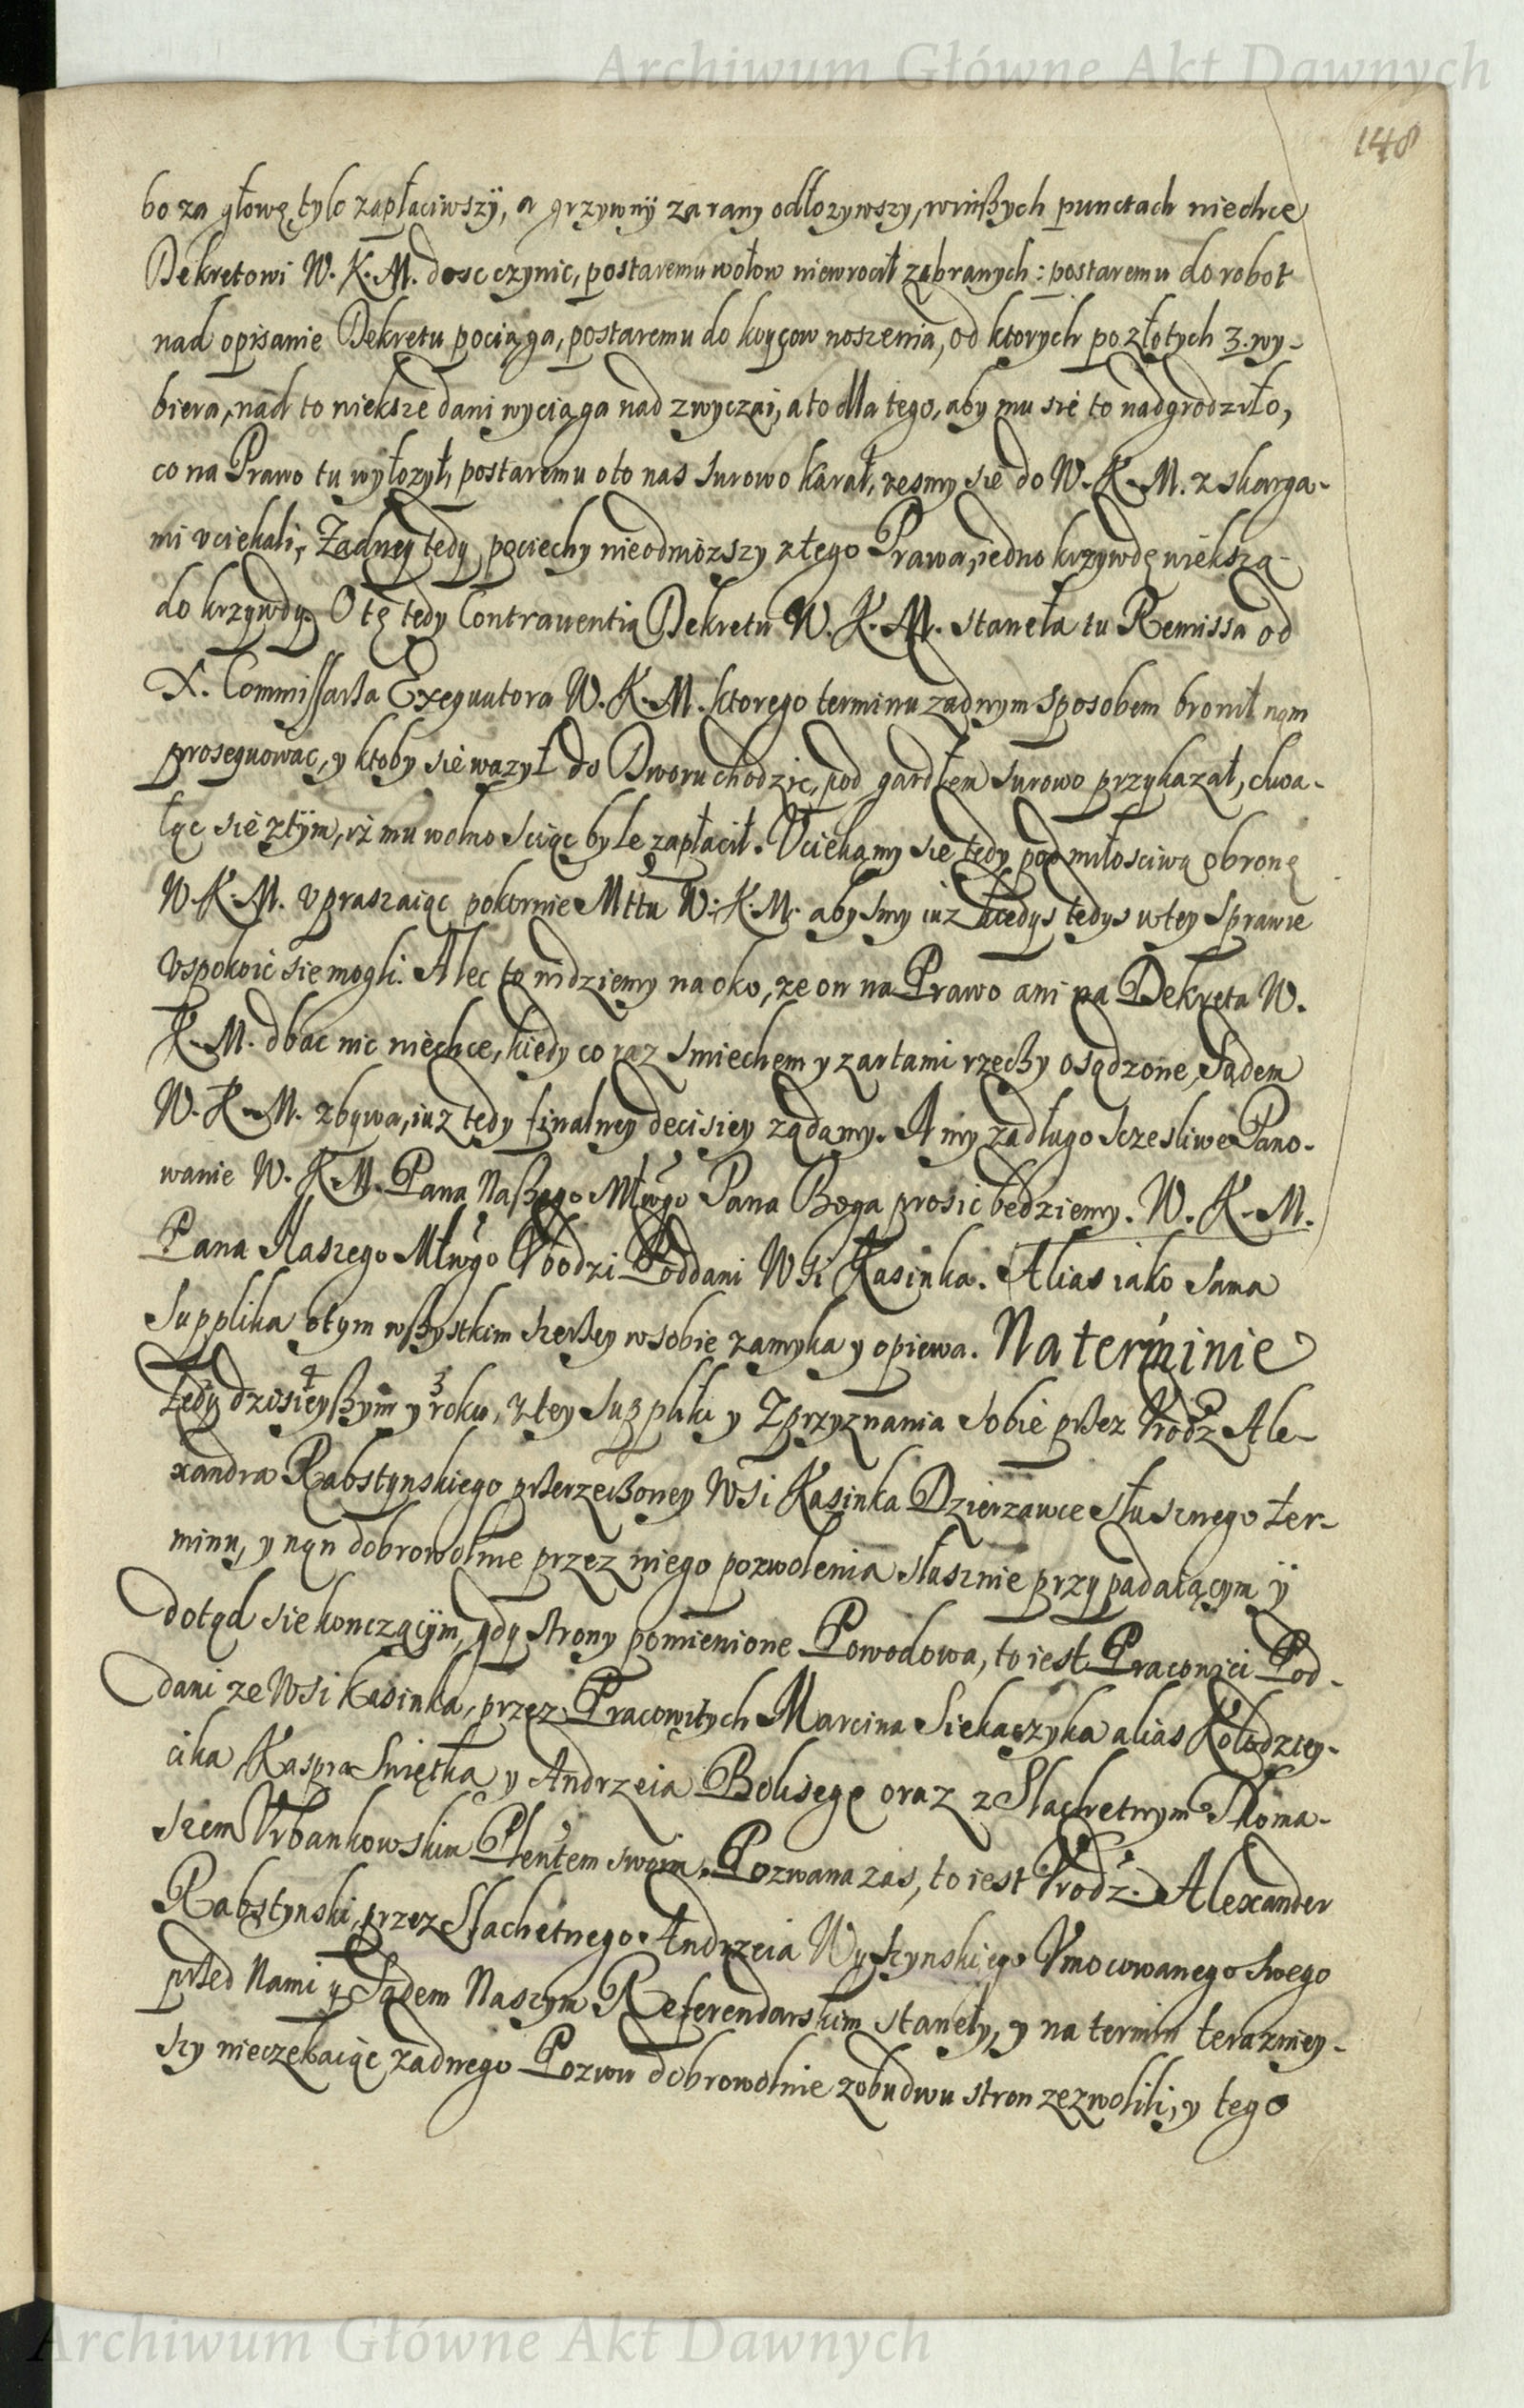 Archiwum Główne Akt Dawnych
148
bo za głowę tylo zapłaciwszÿ, a grzywnÿ za rany odłozywszy, winßych punctach niechce
Dekretowi W. K. M. dosc czynic, postaremu wołow niewrocił zabranych: postaremu do robot
nad opisanie Dekretu pociąga, postaremu do korcow noszenia, od ktorych po złotych 3. wy-
biera, nad to wieksze dani wyciąga nad zwyczai, a to dla tego, aby mu sie to nadgrodziło,
co na Prawo tu wyłozył, postaremu oto nas surowo karał, zesmy sie do W. K. M. z skarga-
mi vciekali, Zadney tedy pociechy nieodniozszy z tego Prawa, iedno krzywdę wieksza
do krzywdy. O tę tedy Contrauentią Dekretu W. K. M. staneła tu Remissa od
X. Commissarza Exequutora W. K. M. ktorego terminu zadnym sposobem bronił nam
prosequowac, y ktoby sie wazył do Dworu chodzic, pod gardłem surowo przykazał, chwa-
ląc sie z tÿm, iż mu wolno sciąc byle zapłacił. Vciekamy sie tedy pod miłosciwą obronę
W. K. M. vpraszaiąc pokornie Mttu W. K. M. abysmy iuz kiedys tedys w tey sprawie
vspokoić sie mogli. Alec to widziemy na oko, ze on na Prawo ani na Dekreta W.
K. M. dbac nic niechce, kiedy co raz smiechem y zartami rzechy osądzone, Sądem
W. K. M. zbywa, iuz tedy finalney decisiey ządamy. A my zadługo sczesliwe Pano-
wanie W. K. M. Pana Naßego Młwgo Pana Boga prosić bedziemy. W. K. M.
Pana Naszego Młwgo Vbodzi Poddani Wsi Kasinka. Alias iako sama
Supplika otym wßystkim szerzey w sobie zamyka y opiewa. Na terminie
tedy dzisieyßym y roku, z tey Suppliki y z przyznania sobie przez Vrodz Ale-
xandra Rabstynskiego przerzeczoney Wsi Kasinka Dzierzawce słusznego ter-
minu, y nąn dobrowolnie przez niego pozwolenia słusznie przypadaiącym ÿ
dotąd sie konczącÿm, gdy strony pomienione Powodowa, to iest Pracowici Pod-
dani ze Wsi Kasinka, przez Pracowitych Marcina Siekaczyka alias Kołodziey-
cika Kaspra Swiętka y Andrzeia Bolisegę oraz z Slachetnym Thoma-
szem Vrbankowskim Plentem swoim, Pozwana zas, to iest Vrodz. Alexander
Rabstynski, przez Slachetnego Andrzeia Wyszynskiego Vmocowanego swego
przed Nami y Sądem Naszym Referendarskim staneły, y na termin terazniey-
szy nieczekaiąc zadnego Pozwu dobrowolnie z obudwu stron zezwolili, y tego
Archiwum Główne Akt Dawnych